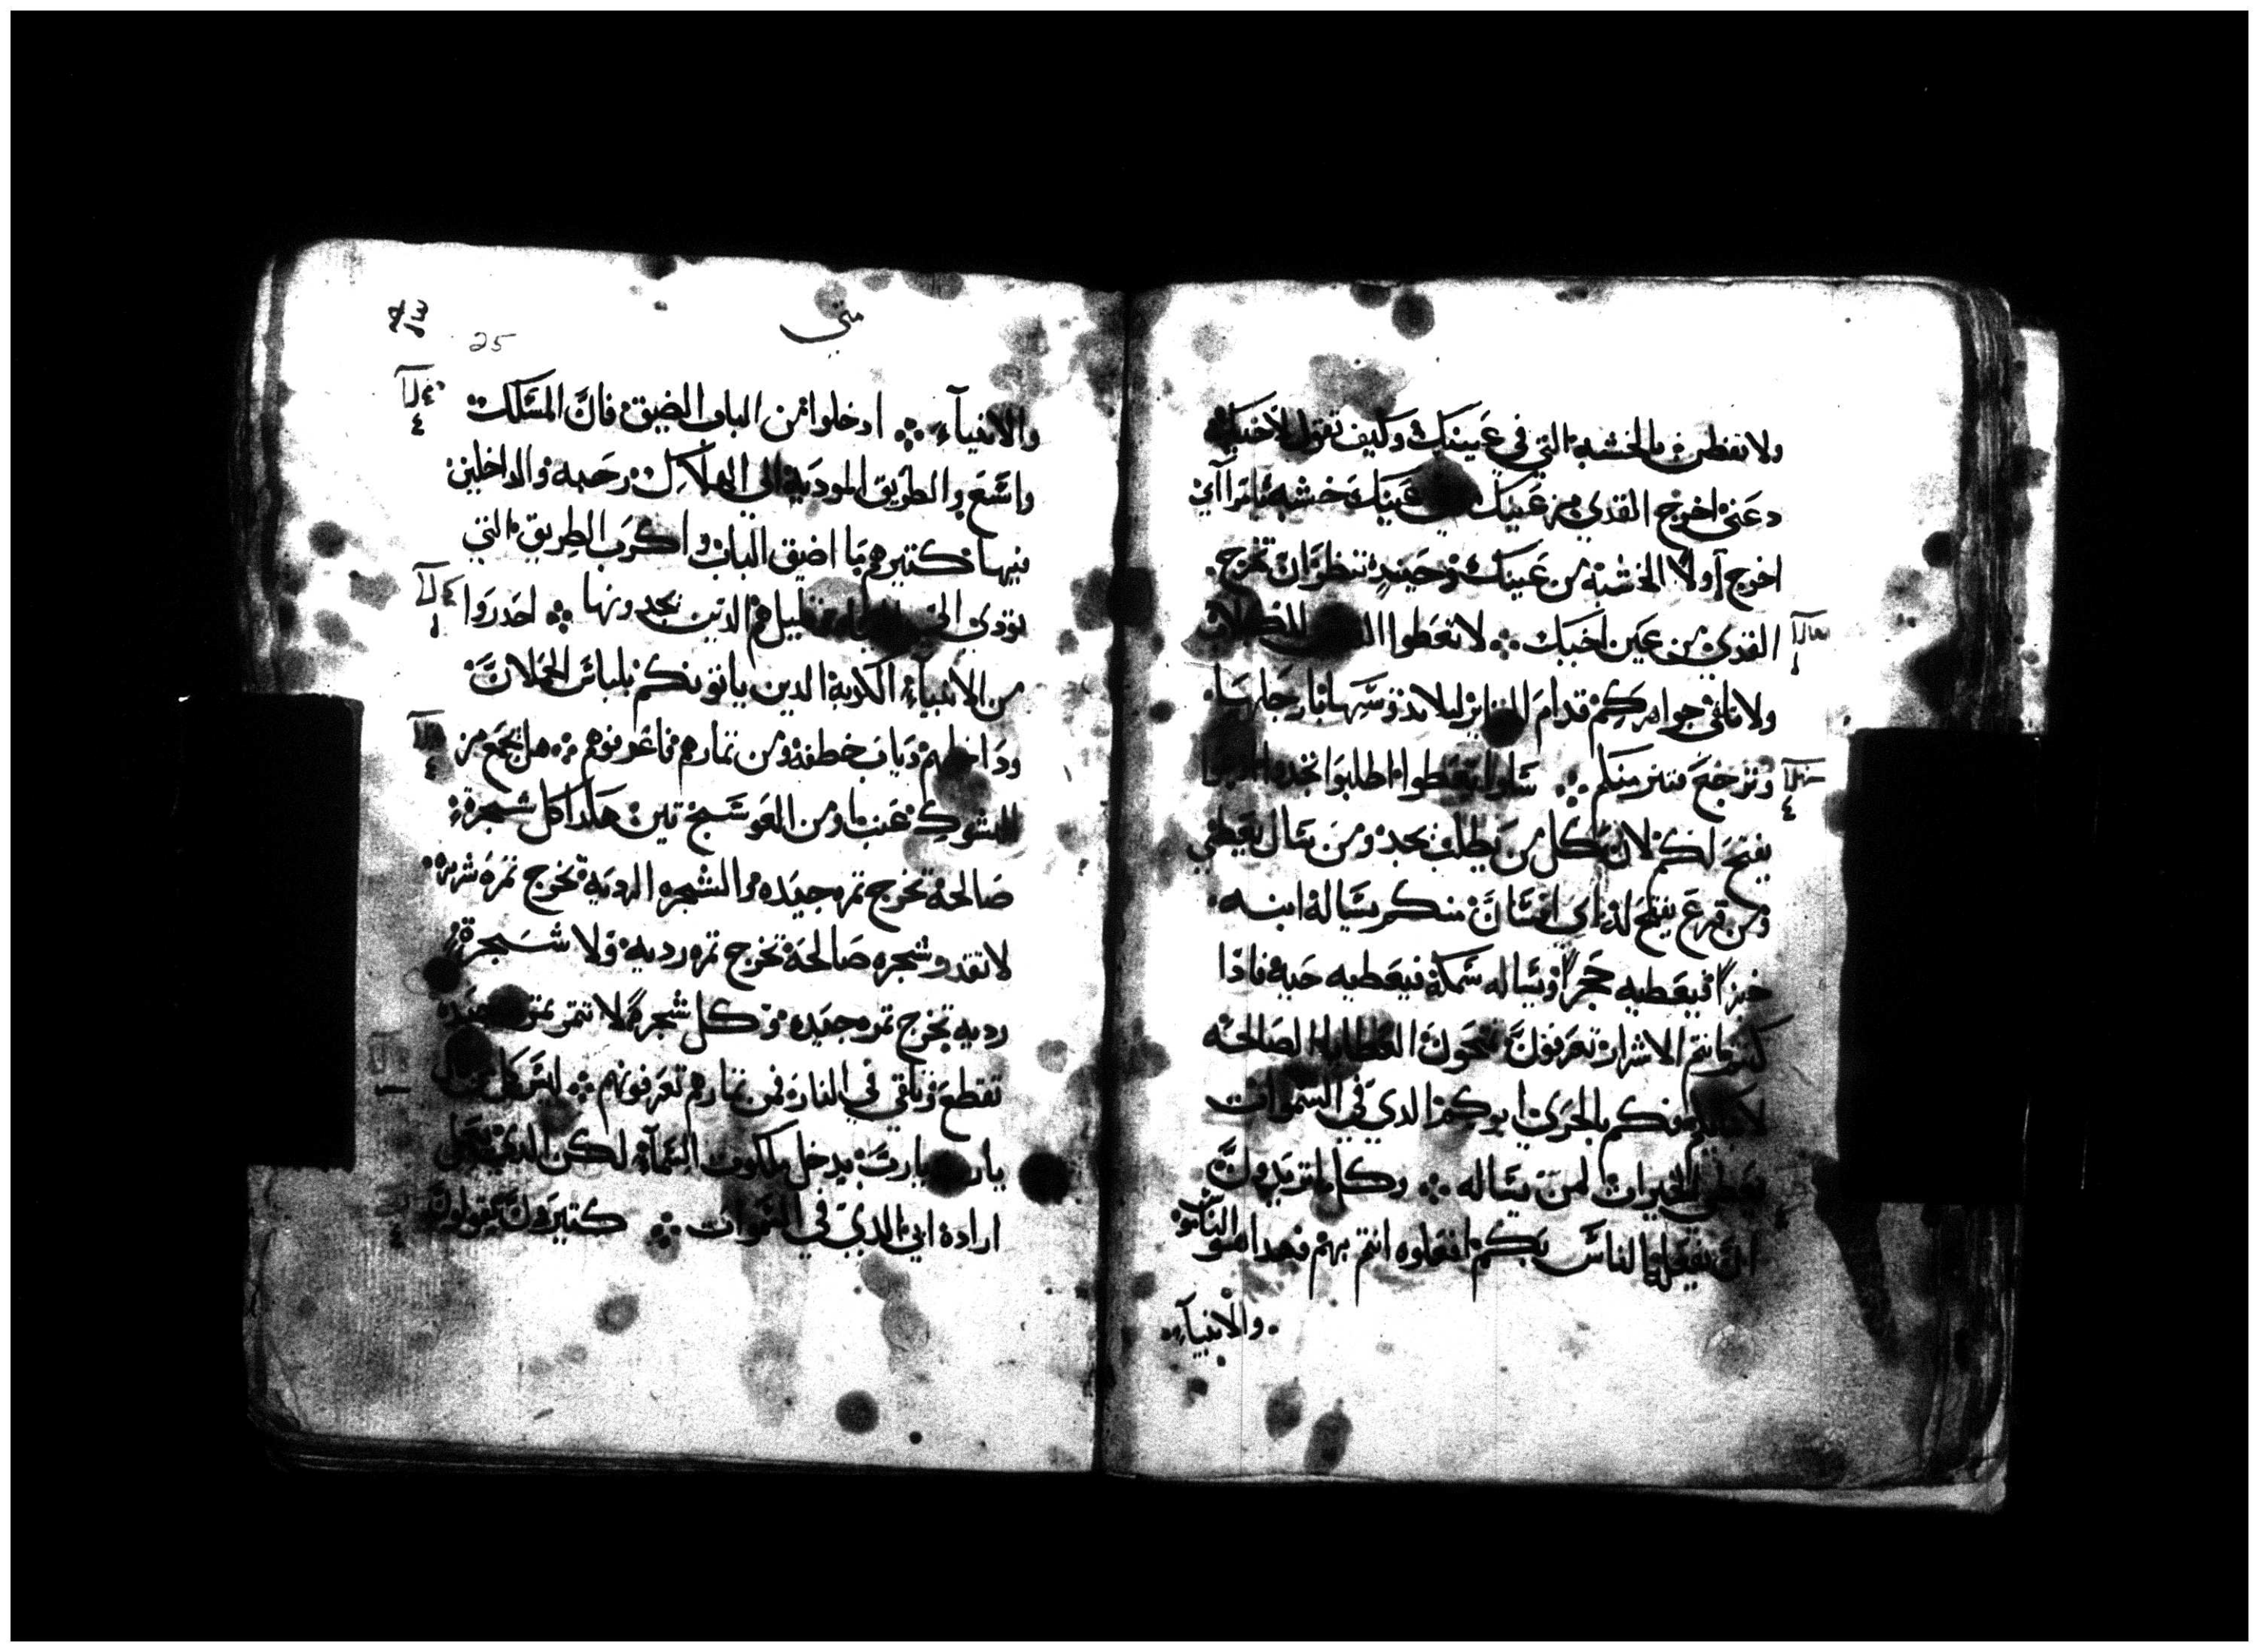 ولا تفطن بالخشبة التي في عينيك وكيف تقول لاخيك
دعني اخرج القدي من عينيك وفي عينيك خشبة يا مرآاي
اخرج آولا الخشبة من عينيك وحينيدٍ تنظر ان تخرج
القدي من عين اخيك ∴ لا تعطوا القدس للكلاب
ولا تلقوا جواهركم قدام الخنازير ليلا تدوسها بارجلها
وترجع فتزمنكم ∴ سلوا تعطوا اطلبوا تجدوا
يفتح لكم لان كل من يطلب يجد ومن سال يعطي
ومن قرع يفتح له اي انسان منكم يساله ابنه
خبزاً فيعطيه حجراً او يساله سمكة فيعطيه حية فادا
كنتم انتم الاشرار تعرفون تنحون العطايا الصالحة
لاولادكم فكم بالحري ابوكم الدي في السموات
يعطي الخيرات لمن يساله ∴ وكلما تريدون
ان يفعل الناس بكم افعلوه انتم بهم فهدا هو الناموس
والانبيآء
متي
25
والانبيآء ∴ ادخلوا من الباب الضيق فان المسلك
واسع والطريق المودية الي الهلاك رحبه والداخلين
فيها كتير هم ما اضيق الباب واكرب الطريق التي
تودي الي الحياه وقليل هم الدين يجدونها ∴ احدروا
من الانبياء الكدبة الدين ياتونكم بلباس الحملان
وداخلهم دياب خطفة ومن تمارهم فاعرفوهم ∴ هل يجمع من
الشوك عنب او من العوسج تين هكدا كل شجرة
صالحة تخرج تمره جيده والشجره الرديه تخرج تمره شريرة
لا تقدر شجره صالحة تخرج تمره رديه ولا شجرة
رديه تخرج تمره جيده وكل شجرة لا تتمر تمره جيده
تقطع وتلقي في النار فمن تمارهم تعرفونهم ∴ ليس كل من
يارب يارب يدخل ملكوت السمآء لكن الدي يعمل
ارادة ابي الدي في السموات ∴ كتيرون يقولون